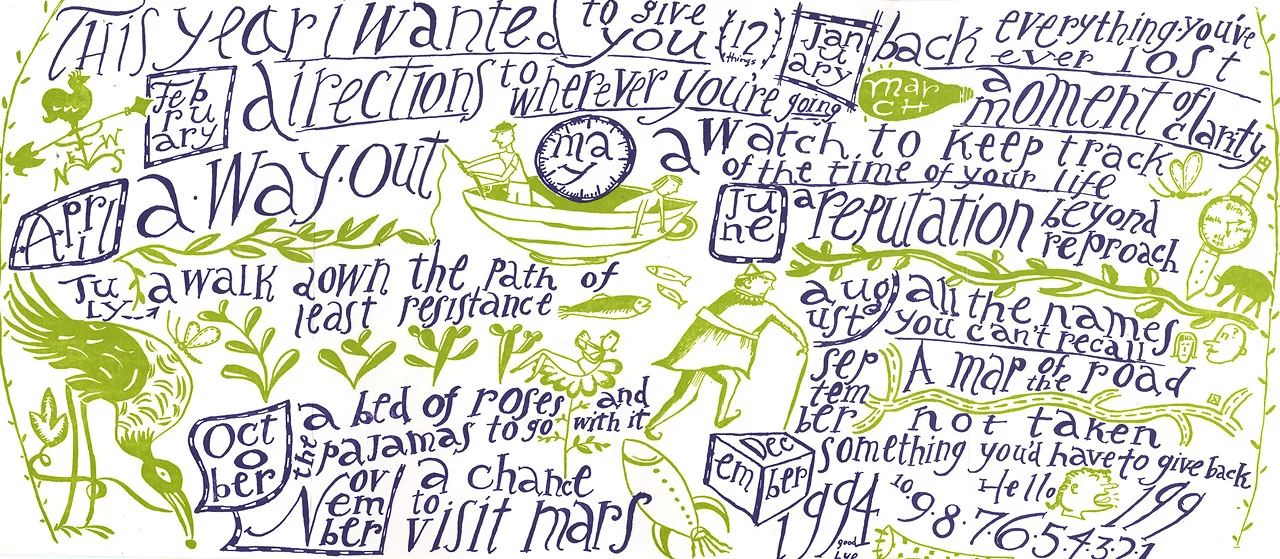 This year I wanted to give you {12 things}
January back everything you've ever lost
February directions to wherever you're going
March a moment of clarity
April a·way·out
may a watch to keep track of the time of your life
June a reputation beyond reproach
July a walk down the path of least resistance
august all the names you can't recall
september A map of the road not taken
October a bed of roses and the pajamas to go with it
November a chance to visit mars
December something you'd have to give back
1994 good bye
10 9·8·7·6·5·4·3·2·1
Hello 199